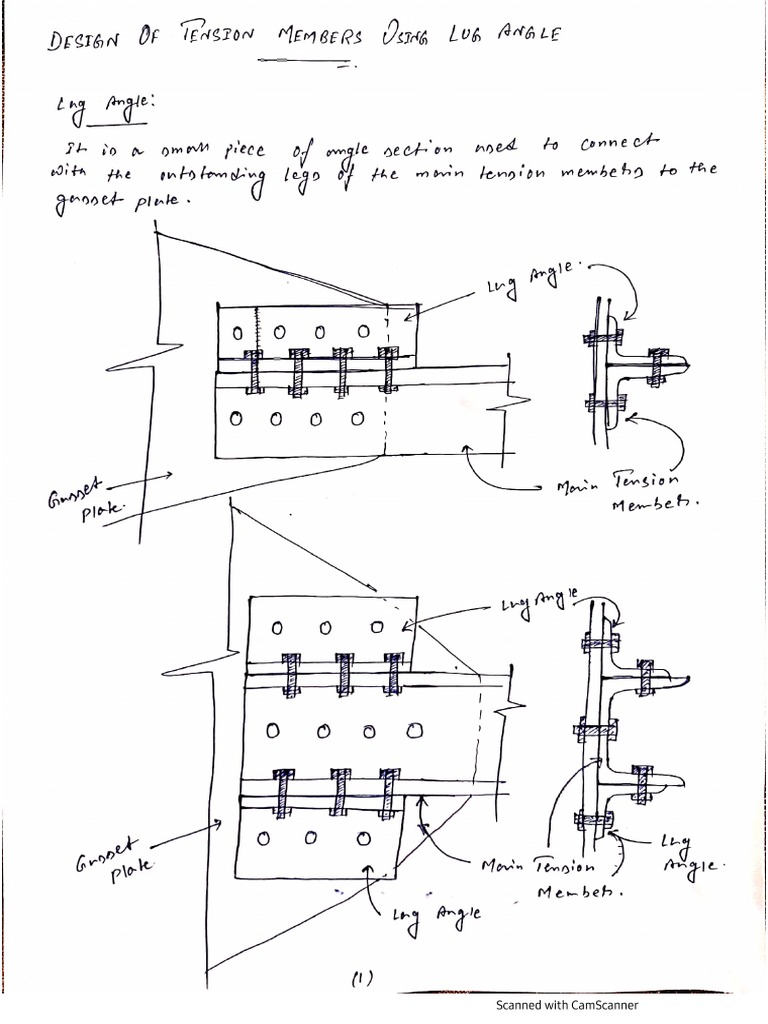 DESIGN OF TENSION MEMBERS USING LUG ANGLE
Lug Angle:
It is a small piece of angle section used to connect
with the outstanding legs of the main tension members to the
gusset plate.
Lug Angle.
Gusset
Plate.
Main Tension
Members.
Lug Angle
Gusset
Plate.
Main Tension
Members.
Lug
Angle.
Lug Angle
(1)
Scanned with CamScanner